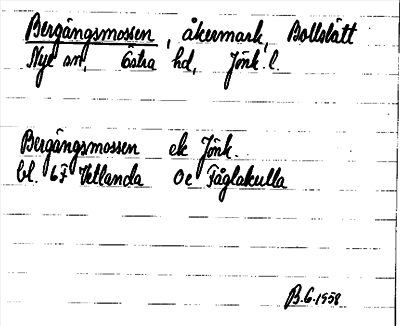 Bergängsmossen, åkermark, Bollslätt
Nye sn, Östra hd, Jönk. l.
Bergängsmossen ek Jönk.
bl. 6F Vetlanda 0c Fåglakulla
B.G. 1958